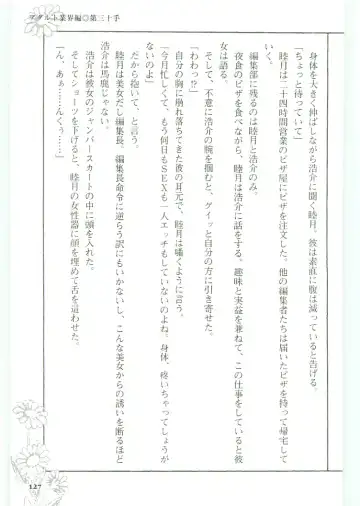 アダルト業界編◎第三十手
身体を大きく伸ばしながら浩介に聞く睦月。彼は素直に腹は減っていると告げる。
「ちょっと待っていて」
睦月は二十四時間営業のピザ屋にピザを注文した。他の編集者たちは届いたピザを持って帰宅して
いく。
編集部に残るのは睦月と浩介のみ。
夜食のピザを食べながら、睦月は浩介に話をする。趣味と実益を兼ねて、この仕事をしていると彼
女は語る。
そして、不意に浩介の腕を掴むと、グイッと自分の方に引き寄せた。
「わわっ!?」
自分の胸に崩れ落ちてきた彼の耳元で、睦月は囁くように言う。
「今月忙しくて、もう何日もSEXも一人エッチもしていないのよね。身体、疼いちゃってしょうが
ないのよ」
だから抱いて、と言う。
睦月は美女だし編集長。編集長命令に逆らう訳にもいかないし、こんな美女からの誘いを断るほど
浩介は馬鹿じゃない。
浩介は彼女のジャンパースカートの中に頭を入れた。
そしてショーツを下げると、睦月の女性器に顔を埋めて舌を這わせた。
「ん、あぁ……んくぅ……」
127